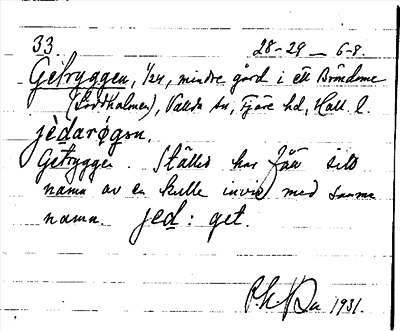 33. 28-29 — 6-8.
Getryggen, 1/24, mindre gård i ett Brändome
(Lördholmen), Vallda sn, Fjäre hd, Hall. l.
jèdarøgən.
Getryggen. Stället har fått sitt
namn av en kulle invid med samma
namn. jed: get.
1931.